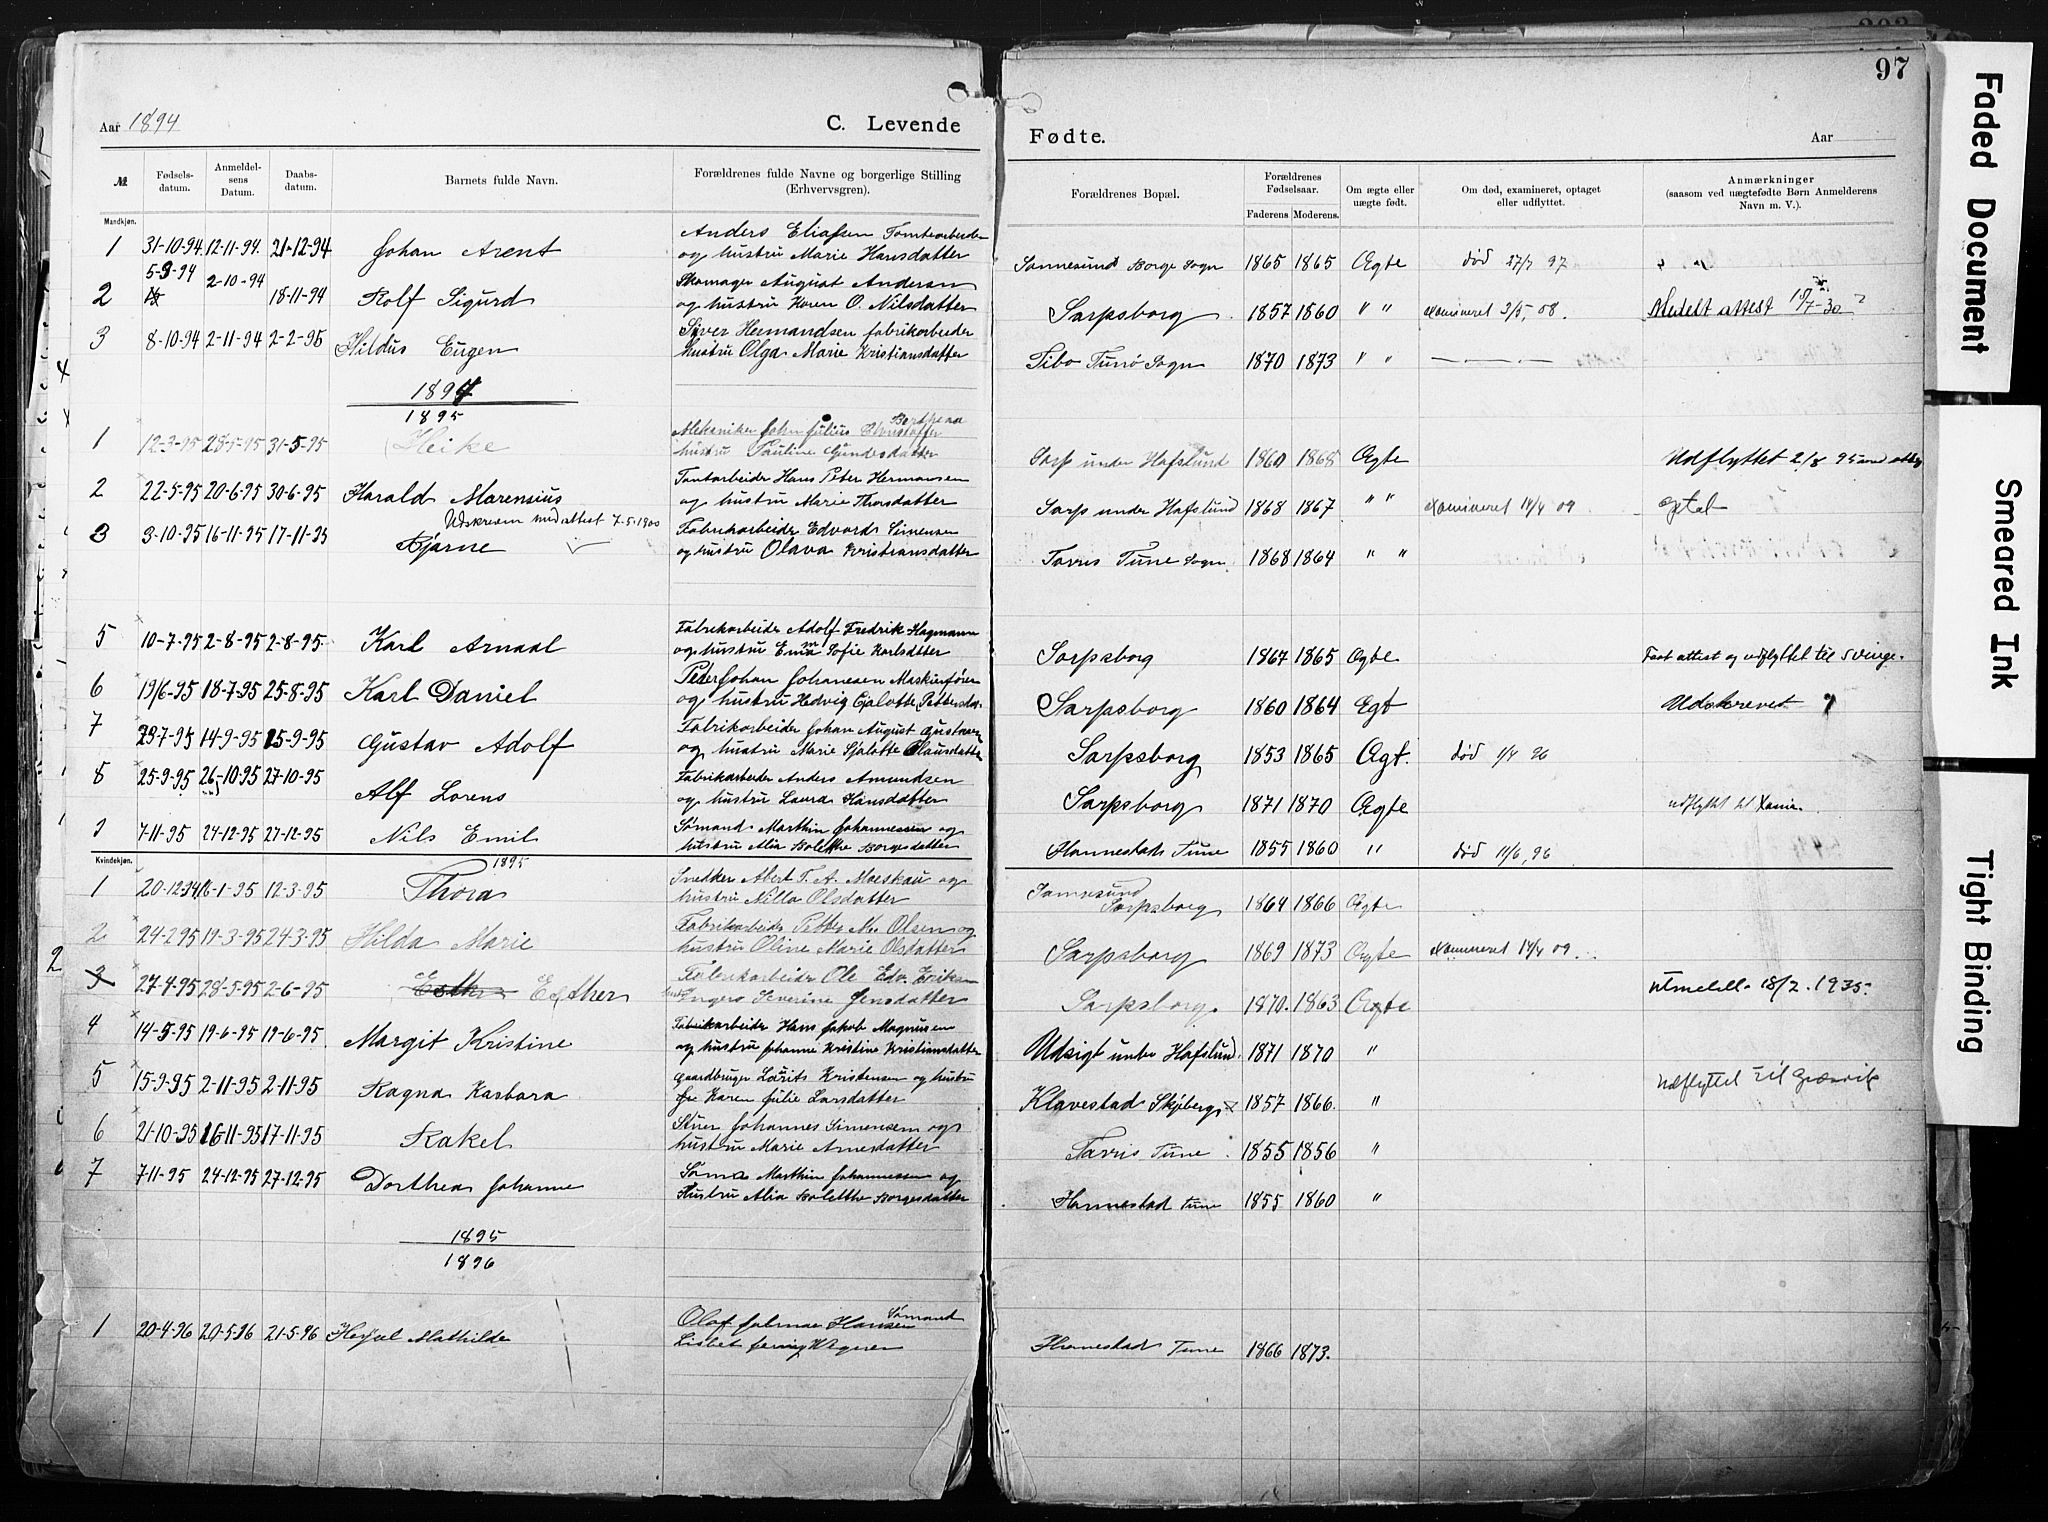 97
Aar 1894
C. Levende
Fødte.
Aar
№ Fødsels-datum. Anmeldel-sens Datum. Daabs-datum. Barnets fulde Navn. Forældrenes fulde Navne og borgerlige Stilling (Erhvervsgren). Forældrenes Bopæl. Forældrenes Fødselsaar. Faderens Moderens. Om ægte eller uægte født. Om død, examineret, optaget eller udflyttet. Anmærkninger (saasom ved uægtefødte Børn Anmelderens Navn m. V.).
Mandkjøn.
1 31-10-94 12-11-94. 21-12-94 Johan Arent Anders Eliassen Tomtearbeider
og hustru Marie Hansdatter Sannesund Borge Sogn 1865 1865 Ægte død 27/7 97
2 5-3-94 2-10-94 18-11-94 Rolf Sigurd Skomager August Andersen
og hustru Karen O. Nilsdatter Sarpsborg 1857 1860 " " examineret 3/5, 08. Meddelt attest 15/7-30
3 8-10-94 2-11-94 2-2-95 Hildus Eugen Siver Hermandsen fabrikarbeider
hustru Olga Marie Kristiansdatter Tibo Tune Sogn 1870 1873 " "
1894
1895
1 12-3-95 28-5-95 31-5-95 Heike Mekaniker John Julius
hustru Pauline Gundersdatter Sarp under Hafslund 1860 1868 Ægte Udflyttet 2/8 95
2 22-5-95 20-6-95 30-6-95 Harald Marensius Tomtarbeider Hans Peter Hermansen
og hustru Marie Thorsdatter Sarp under Hafslund 1868 1867 " " examineret 14/4 09
Udskreven med attest 7-5-1900
3 3-10-95 16-11-95 17-11-95 Bjarne Fabrikarbeider Edvard Simensen
og hustru Olava Kristiansdatter Tarris Tune Sogn 1868 1864 " "
5 10-7-95 2-8-95 2-8-95. Karl Arnaal Fabrikarbeider Adolf Fredrik Hagmann
og hustru Emma Sofie Karlsdatter Sarpsborg 1867 1865 Ægte Faat attest og udflyttet til Sverige.
6 19/6-95 18-7-95 25-8-95 Karl Daniel Peder Johan Johanesen Maskinfører
og hustru Hedvig Petters Sarpsborg 1860 1864 Egt Udskrevet
7 23-7-95 14-9-95 15-9-95 Gustav Adolf Fabrikarbeider Johan August Gustavsen
og hustru Marie Sjalotte Clausdatter Sarpsborg 1853 1865 Ægt. død 1/4 96
8 25-9-95 26-10-95 27-10-95 Alf Lorens Fabrikarbeider Anders Amundsen
og hustru Laura Hansdatter Sarpsborg 1871 1870 Ægte udflyttet til
9 7-11-95 24-12-95 27-12-95 Nils Emil Sømand Marthin Johannessen og
hustru Alia Bolethe Borgesdatter Hannestads Tune 1855 1860 " død 11/6, 96
Kvindekjøn.
1895
1 20-12-94 6-1-95 12-3-95 Thora Snedker Abert T. A. Moeskau og
hustru Nilla Olsdatter Sannesund Sarpsborg 1864 1866 Ægte
2 24-2-95 19-3-95 24-3-95 Hilda Marie Fabrikarbeider Petter M. Olsen og
hustru Oline Marie Olsdatter Sarpsborg 1869 1873 Ægte examineret 14/4 09.
3 27-4-95 28-5-95 2-6-95 Esther Esther Fabrikarbeider Ole Edv. Eriksen
Ingers Severine Jensdatter Sarpsborg. 1870. 1863 Ægte Utmeldt 18/2. 1935.
4 14-5-95 19-6-95 19-6-95. Margit Kristine Fabrikarbeider Hans Jakob Magnusen
og hustru Johanne Kristine Kristiansdatter Udsigt under Hafslund. 1871 1870 "
5 15-9-95 2-11-95 2-11-95 Ragna Karbara Gaardbruger Laurits Kristensen og hustru
Karen Julie Larsdatter Klavestad Skjeberg 1857 1866. " Udflyttet til Grænvik
6 21-10-95 16-11-95 17-11-95 Rakel Johannes Simensen og
hustru Marie Arnesdatter Tarris Tune. 1855 1856 "
7 7-11-95 24-12-95 27-12-95 Dorthea Johanne Sømand Marthin Johannessen og
Hustru Alia Bolethe Borgesdatter Hannestad Tune 1855 1860 "
1895
1896
1 20-4-96 20-5-96 21-5-96 Mathilde Olaf Hansen Sømand
Lisbet Hannestad Tune 1866 1873.
Faded Document
Smeared Ink
Tight Binding